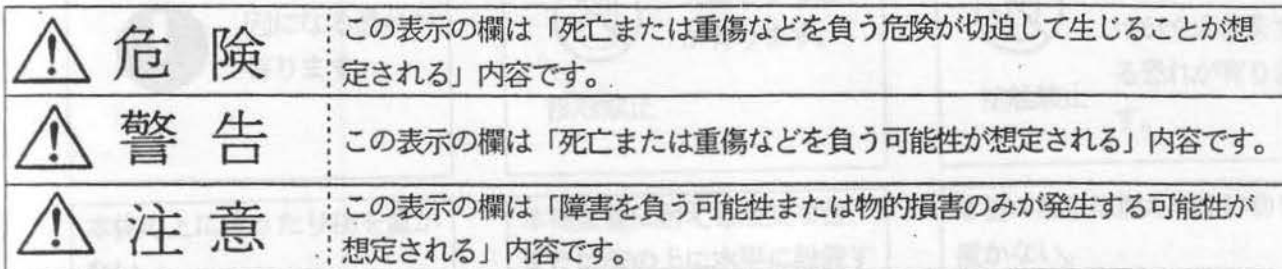 危険
この表示の欄は「死亡または重傷などを負う危険が切迫して生じることが想
定される」内容です。
警告
この表示の欄は「死亡または重傷などを負う可能性が想定される」内容です。
注意
この表示の欄は「障害を負う可能性または物的損害のみが発生する可能性が
想定される」内容です。